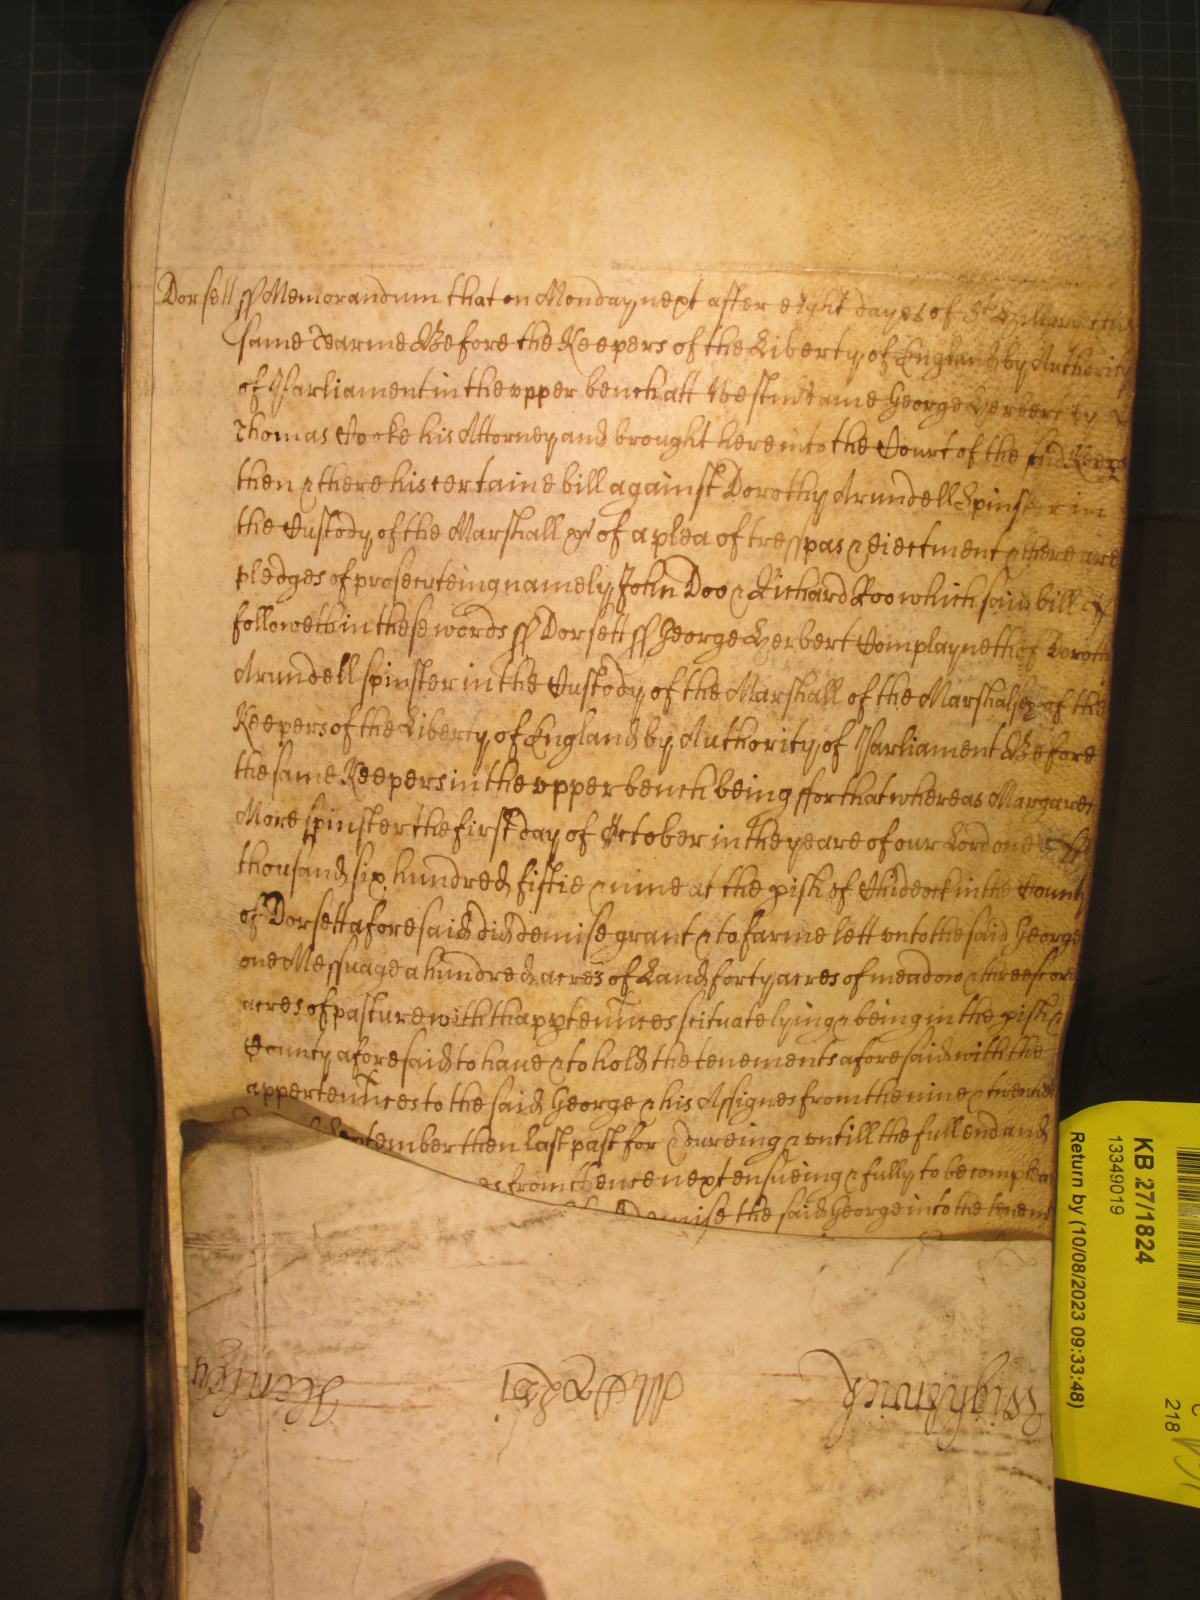 Dorsett ss Memorandum that on Monday next after eight dayes of St Hillary this
same Tearme Before the Keepers of the Liberty of England by Authority
of Parliament in the upper bench att Westm Came George Herbert by
Thomas Cooke his Attorney and brought here into the Court of the said Keep
then & there his certaine bill against Dorothy Arundell Spinster in
the Custody of the Marshall &c of a plea of trespas & eiectment & there are
pledges of prosecuteing namely John Doo & Richard Roo which said bill
followeth in these words ss Dorsett ss George Herbert Complayneth of Doroth
Arundell spinster in the Custody of the Marshall of the Marshalsey of the
Keepers of the Liberty of England by Authority of Parliament Before
the same Keepers in the upper bench being ffor that whereas Margaret
More spinster the first day of October in the yeare of our Lord one
thousand six hundred fiftie & nine at the pish of Chideock in the County
of Dorsett aforesaid did demise grant & to farme lett unto the said George
one Messuage a hundred acres of Land forty acres of meadow & threescore
acres of pasture with thappurtennces scituate lying & being in the pish &
County aforesaid to have & to hold the tenements aforesaid with the
appertennces to the said George & his Assignes from the nine & twentieth
September then last past for & dureing & untill the full end and
es from thence next ensueing & fully to be compleat
demise the said George into the tenem
Wightwick
Henley
KB 27/1824
13349019
Return by (10/08/2023 09:33:48)
218